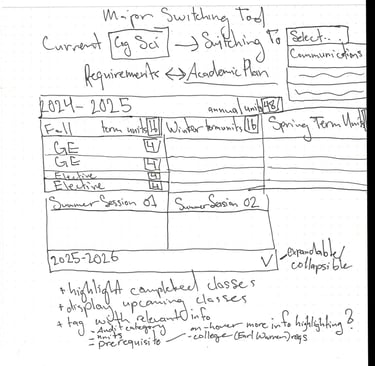 Major Switching Tool
Current Cg Sci → Switching To Select...
Communications
Requirements ↔ Academic Plan
2024-2025 annual units 48
Fall term units 16 Winter term units 16 Spring Term Units
GE 4
GE 4
Elective 4
Elective 4
Summer Session 01 Summer Session 02
2025-2026
expandable/
collapsible
+ highlight completed classes
+ display upcoming classes
+ tag with relevant info
- Audit category
- units
- prerequisite
on-hover more info highlighting?
- college (Earl Warren) reqs